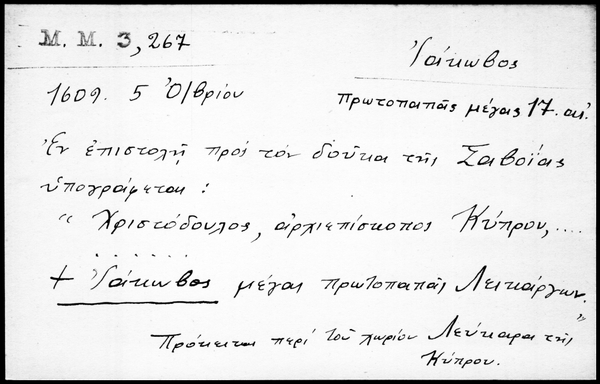 Μ. Μ. 3, 267
Ἰάκωβος
1609. 5 Ὀ/βρίου
πρωτοπαπᾶς μέγας 17. αἰ.
Ἐν ἐπιστολῇ πρὸς τὸν δοῦκα τῆς Σαβοΐας
ὑπογράφεται:
“ Χριστόδουλος, ἀρχιεπίσκοπος Κύπρου, ....
. . . . . .
+ Ἰάκωβος μέγας πρωτοπαπᾶς Λευκάρων.”
Πρόκειται περὶ τοῦ χωρίου Λεύκαρα τῆς
Κύπρου.